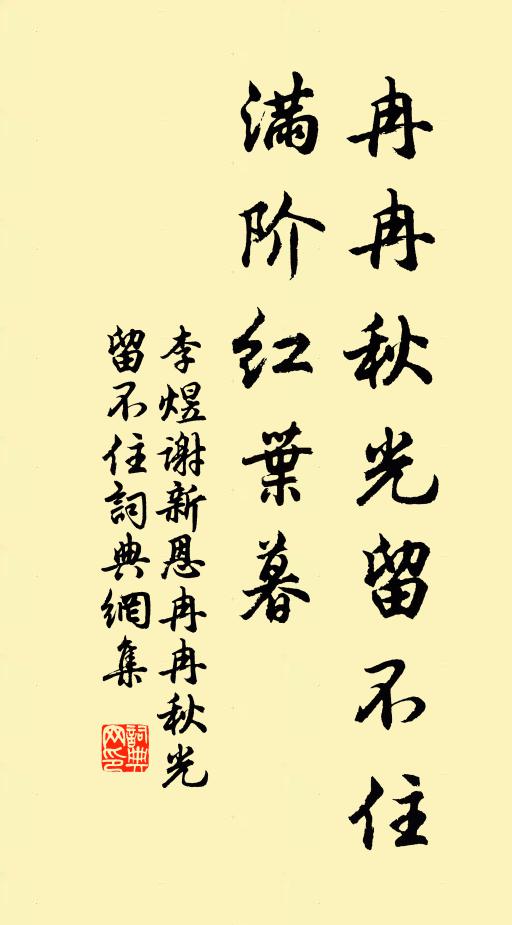 冉冉秋光留不住
满阶红葉暮
李煜谢新恩冉冉秋光
留不住詞典網集
詞典
网印